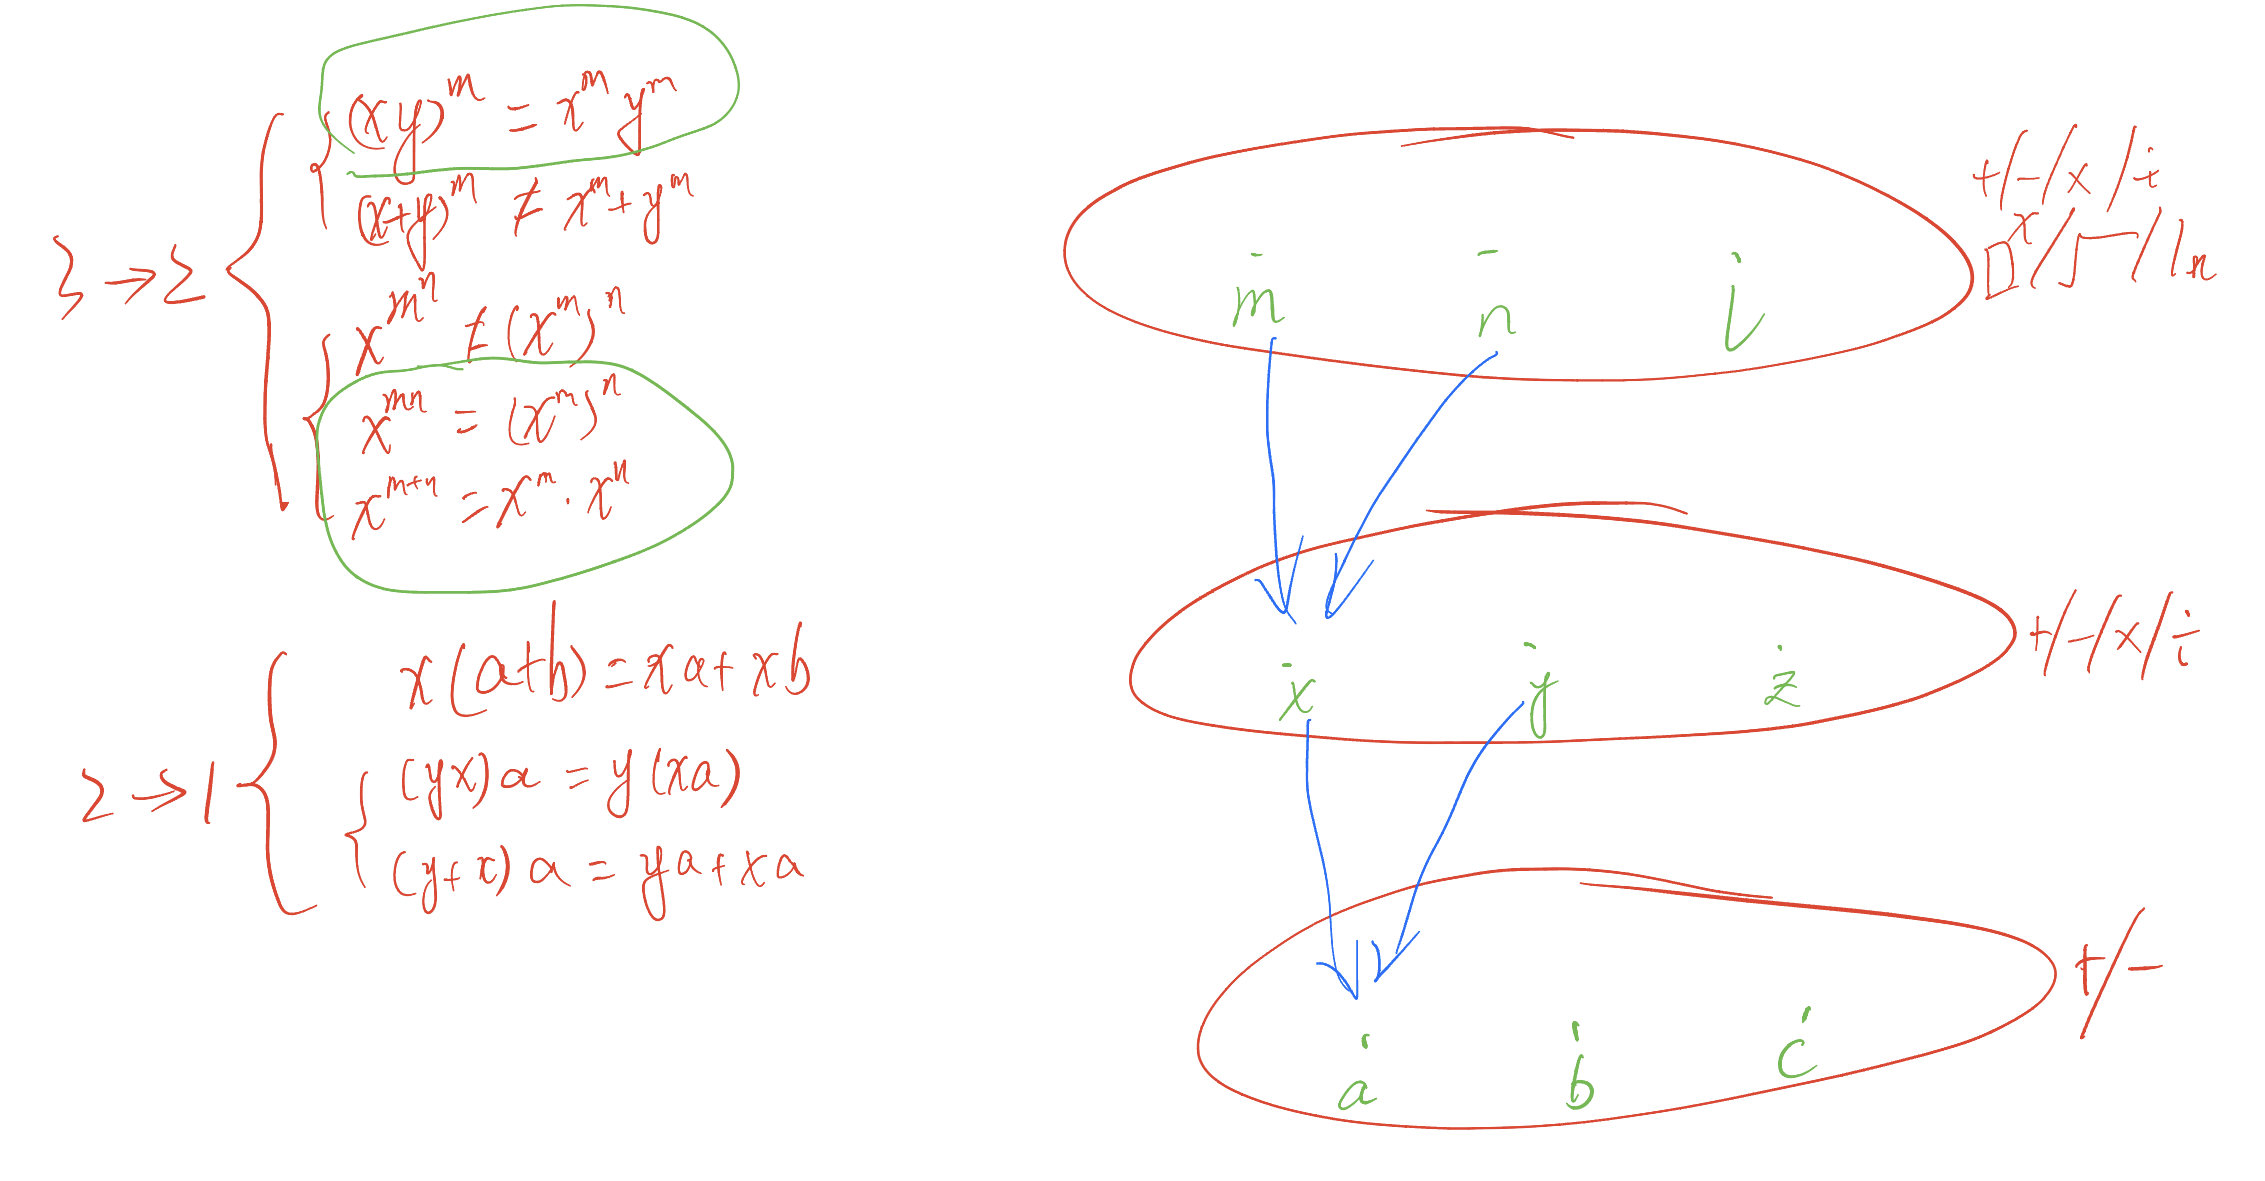 (xy)^m = x^m y^m
(x+y)^m ≠ x^m + y^m
3 → 2
x^{m^n} ≠ (x^m)^n
x^{mn} = (x^m)^n
x^{m+n} = x^m · x^n
x(a+b) = xa + xb
2 → 1
(yx)a = y(xa)
(y+x)a = ya + xa
+/-/x/÷
□^x/√/ln
m n l
+/-/x/÷
x y z
+/-
a b c